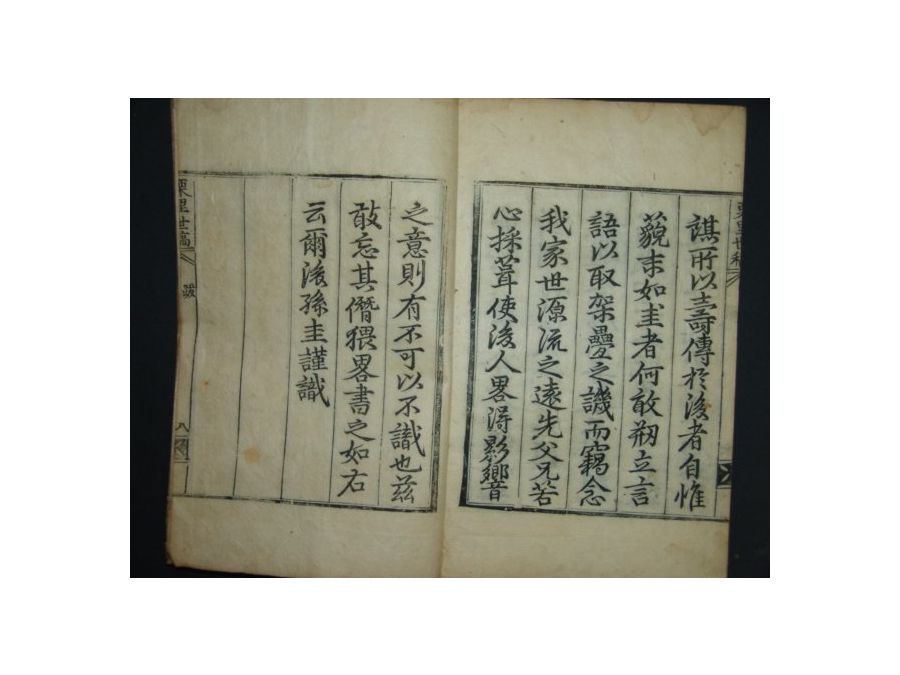 栗里世稿
謀所以壽傳於後者自惟
藐末如圭者何敢刱立言
語以取架疊之譏而竊念
我家世源流之遠先父兄苦
心採葺使後人畧得影響
之意則有不可以不識也玆
敢忘其僭猥畧書之如右
云爾後孫圭謹識
栗里世稿 跋 八